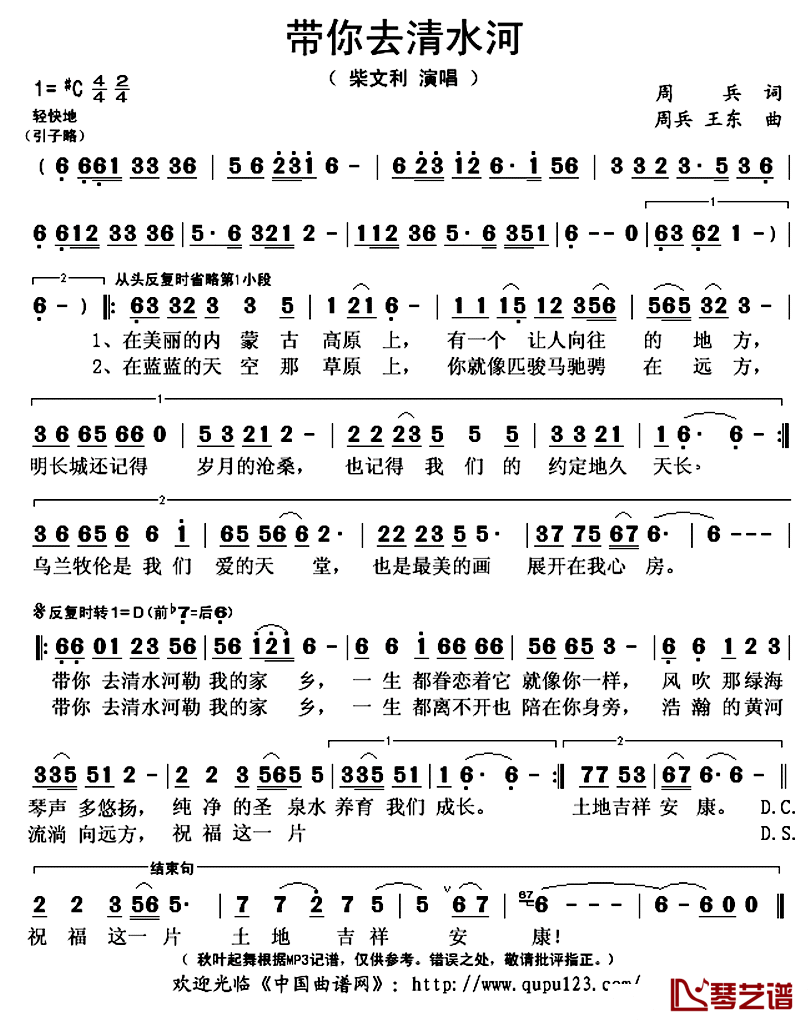 带你去清水河
（ 柴文利 演唱 ）
1= #C 4/4 2/4
周 兵 词
周兵 王东 曲
轻快地
（引子略）
( 6 661 33 36 | 56 231 6 - | 6 23 12 6· 1 56 | 3 32 3· 5 36 |
6 612 33 36 | 5· 6 321 2 - | 112 36 5· 6 351 | 6 - - 0 | 63 62 1 - ) |
1
2 从头反复时省略第1小段
6 - ) ‖: 63 32 3 3 5 | 1 21 6 - | 1 1 15 12 356 | 565 32 3 - |
1、在美丽的内 蒙 古 高原 上， 有一个 让人向往 的 地 方，
2、在蓝蓝的天 空 那 草原 上， 你就像匹骏马驰骋 在 远 方，
1
36 65 66 0 | 53 21 2 - | 22 23 5 5 5 | 33 21 | 1 6· 6 - :‖
明长城还记得 岁月的沧桑， 也记得 我 们 的 约定地久 天长。
2
36 65 6 6 1 | 65 56 6 2· | 22 23 5 5 | 37 75 67 6· | 6 - - - |
乌兰牧伦是 我 们 爱的天 堂， 也是最美的画 展开在我心 房。
反复时转1=D（前♭7=后6）
‖: 66 01 23 56 | 56 121 6 - | 6 6 1 66 66 | 56 65 3 - | 6 6 1 2 3 |
带你 去清水河勒 我的家 乡， 一 生 都眷恋着它 就像你一样， 风 吹 那绿海
带你 去清水河勒 我的家 乡， 一 生 都离不开也 陪在你身旁， 浩 瀚 的黄河
1
2
335 51 2 - | 2 2 3 565 5 | 335 51 | 1 6· 6 - :‖ 77 53 | 67 6· 6 - ‖
琴声 多悠扬， 纯 净 的圣 泉水 养育 我们 成长。 土地吉祥 安 康。 D.C.
流淌 向远方， 祝 福 这一 片 D.S.
结束句
2 2 3 56 5· | 7 7 2 7 5 | 5 ∨ 6 7 | 67 6 - - - | 6 - 6 0 0 ‖
祝 福 这一 片 土 地 吉 祥 安 康！
（ 秋叶起舞根据MP3记谱，仅供参考。错误之处，敬请批评指正。）
欢迎光临《中国曲谱网》：http://www.qupu123.com/
琴艺谱